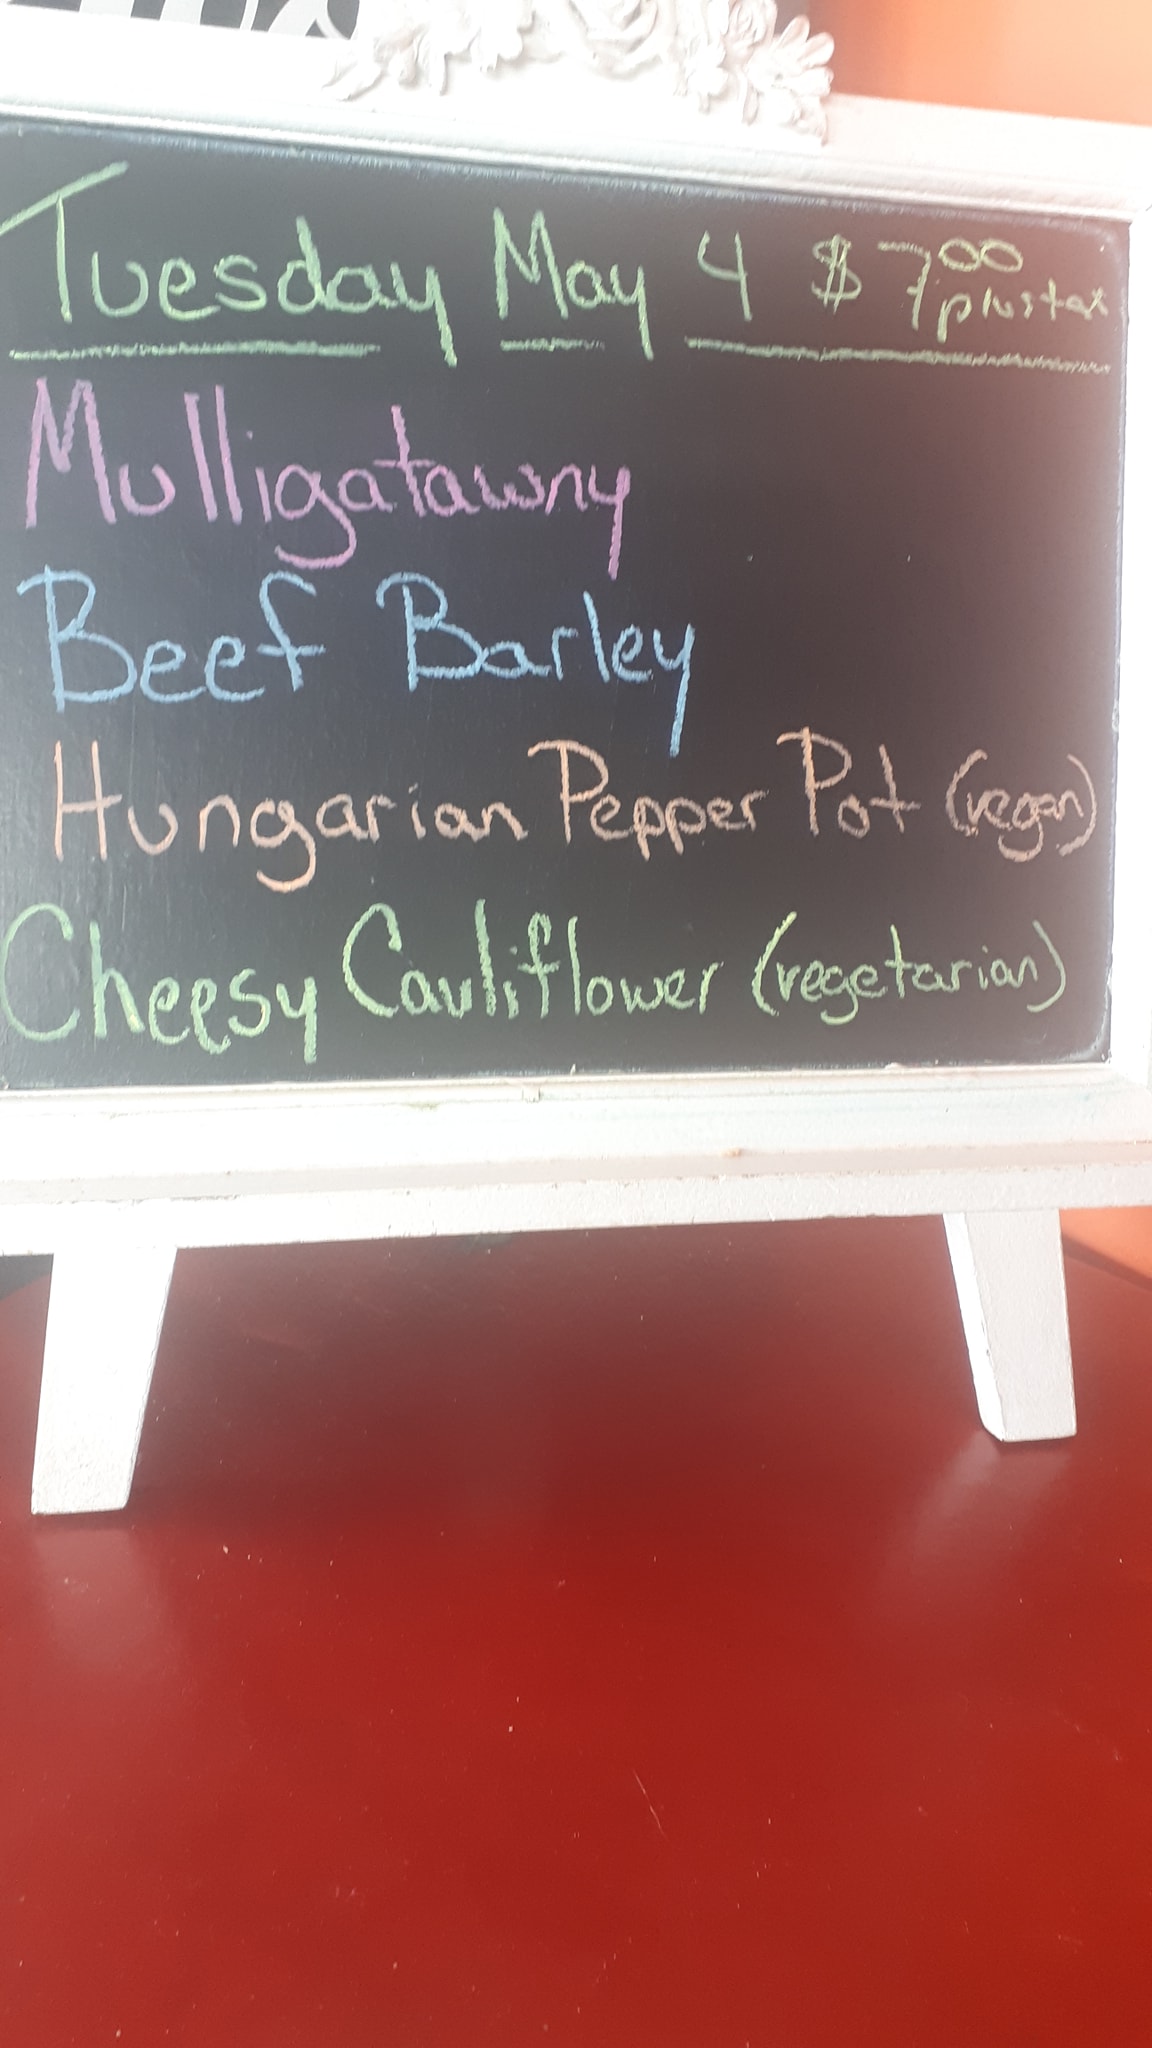 Tuesday May 4 $7.00 plus tax
Mulligatawny
Beef Barley
Hungarian Pepper Pot (vegan)
Cheesy Cauliflower (vegetarian)